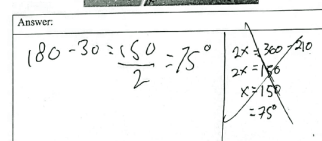 Answer:
180 - 30 = 150/2 = 75°
2x = 360 - 210
2x = 150
x = 150
= 75°